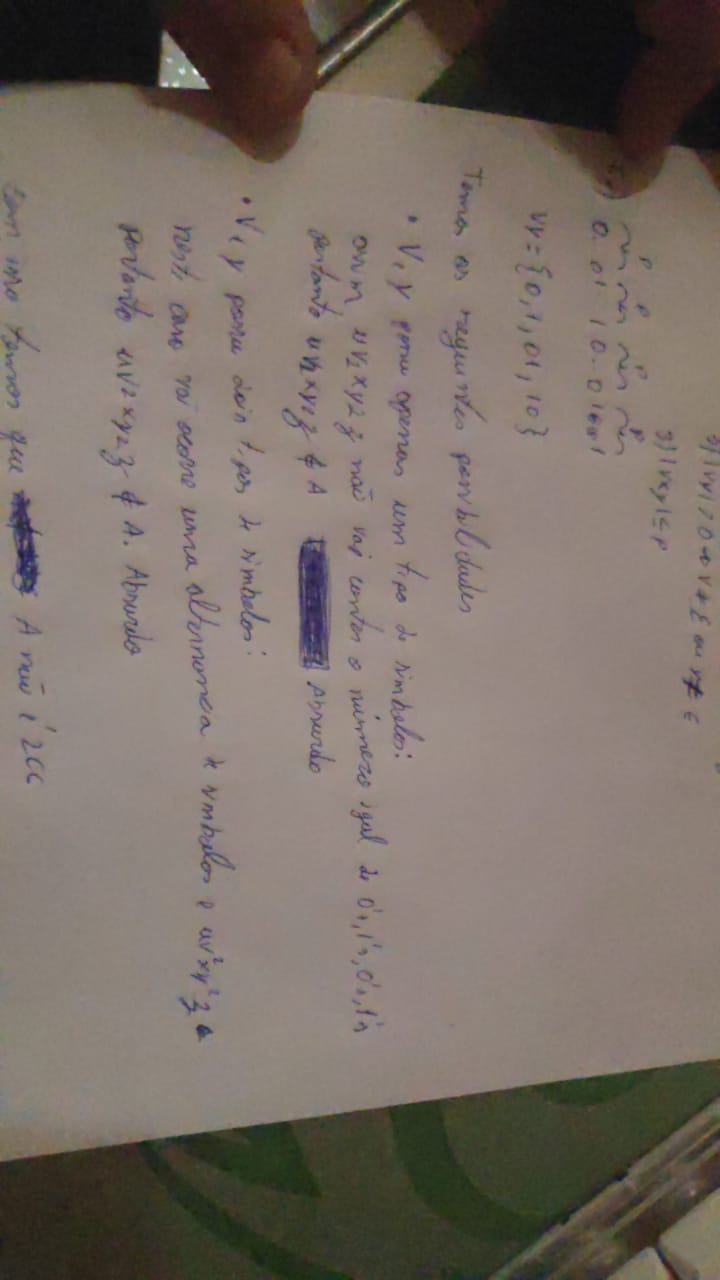 2) |vy| > 0 → v ≠ ε ou y ≠ ε
3) |vxy| ≤ p
p p p p
0.. 01 10.. 01 1
vy = {0, 1, 01, 10}
Temos as seguintes possibilidades
• V, y possu apenas um tipo de símbolos:
assim uv2xy2z não vai conter o número igal de 0's, 1's, 0's, 1's
portanto uv2xy2z ∉ A Absurdo
• V, y possu dois tipos de símbolos:
neste caso vai ocorre uma alternancia de símbolos e uv²xy²z
portanto uv2xy2z ∉ A. Absurdo
com isso temos que A não é LLC